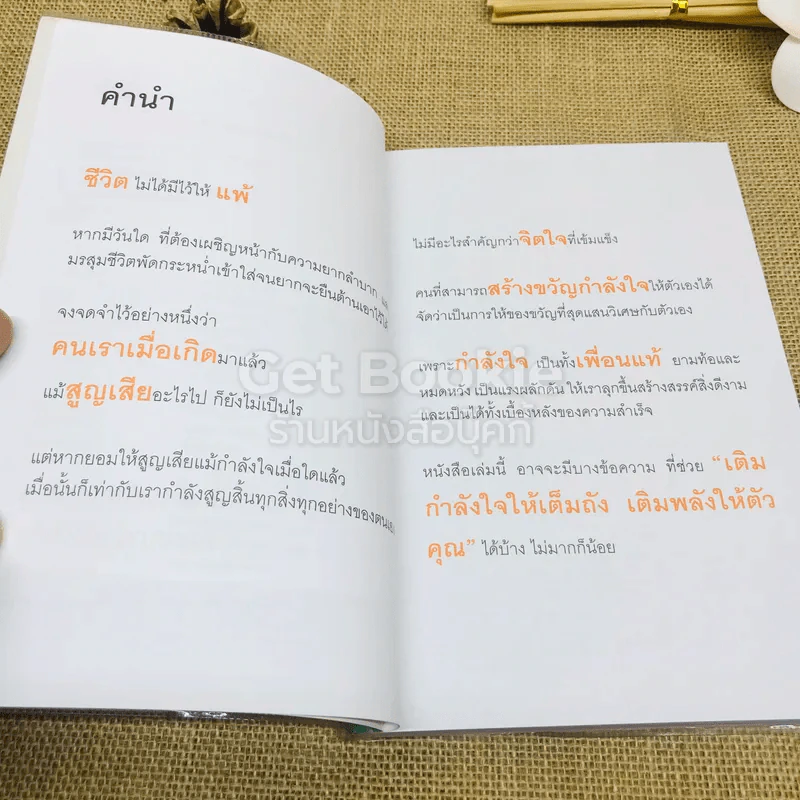 คำนำ
ชีวิต ไม่ได้มีไว้ให้ แพ้
หากมีวันใด ที่ต้องเผชิญหน้ากับความยากลำบาก
มรสุมชีวิตพัดกระหน่ำเข้าใส่จนยากจะยืนต้านเอาไว้ได้
จงจดจำไว้อย่างหนึ่งว่า
คนเราเมื่อเกิดมาแล้ว
แม้สูญเสียอะไรไป ก็ยังไม่เป็นไร
แต่หากยอมให้สูญเสียแม้กำลังใจเมื่อใดแล้ว
เมื่อนั้นก็เท่ากับเรากำลังสูญสิ้นทุกสิ่งทุกอย่างของตนเอง
ไม่มีอะไรสำคัญกว่าจิตใจที่เข้มแข็ง
คนที่สามารถสร้างขวัญกำลังใจให้ตัวเองได้
จัดว่าเป็นการให้ของขวัญที่สุดแสนวิเศษกับตัวเอง
เพราะกำลังใจ เป็นทั้งเพื่อนแท้ ยามท้อและ
หมดหวัง เป็นแรงผลักดัน ให้เราลุกขึ้นสร้างสรรค์สิ่งดีงาม
และเป็นได้ทั้งเบื้องหลังของความสำเร็จ
หนังสือเล่มนี้ อาจจะมีบางข้อความ ที่ช่วย "เติม
กำลังใจให้เต็มถัง เติมพลังให้ตัว
คุณ" ได้บ้าง ไม่มากก็น้อย
Get Bookie
ร้านหนังสือบุคกี้